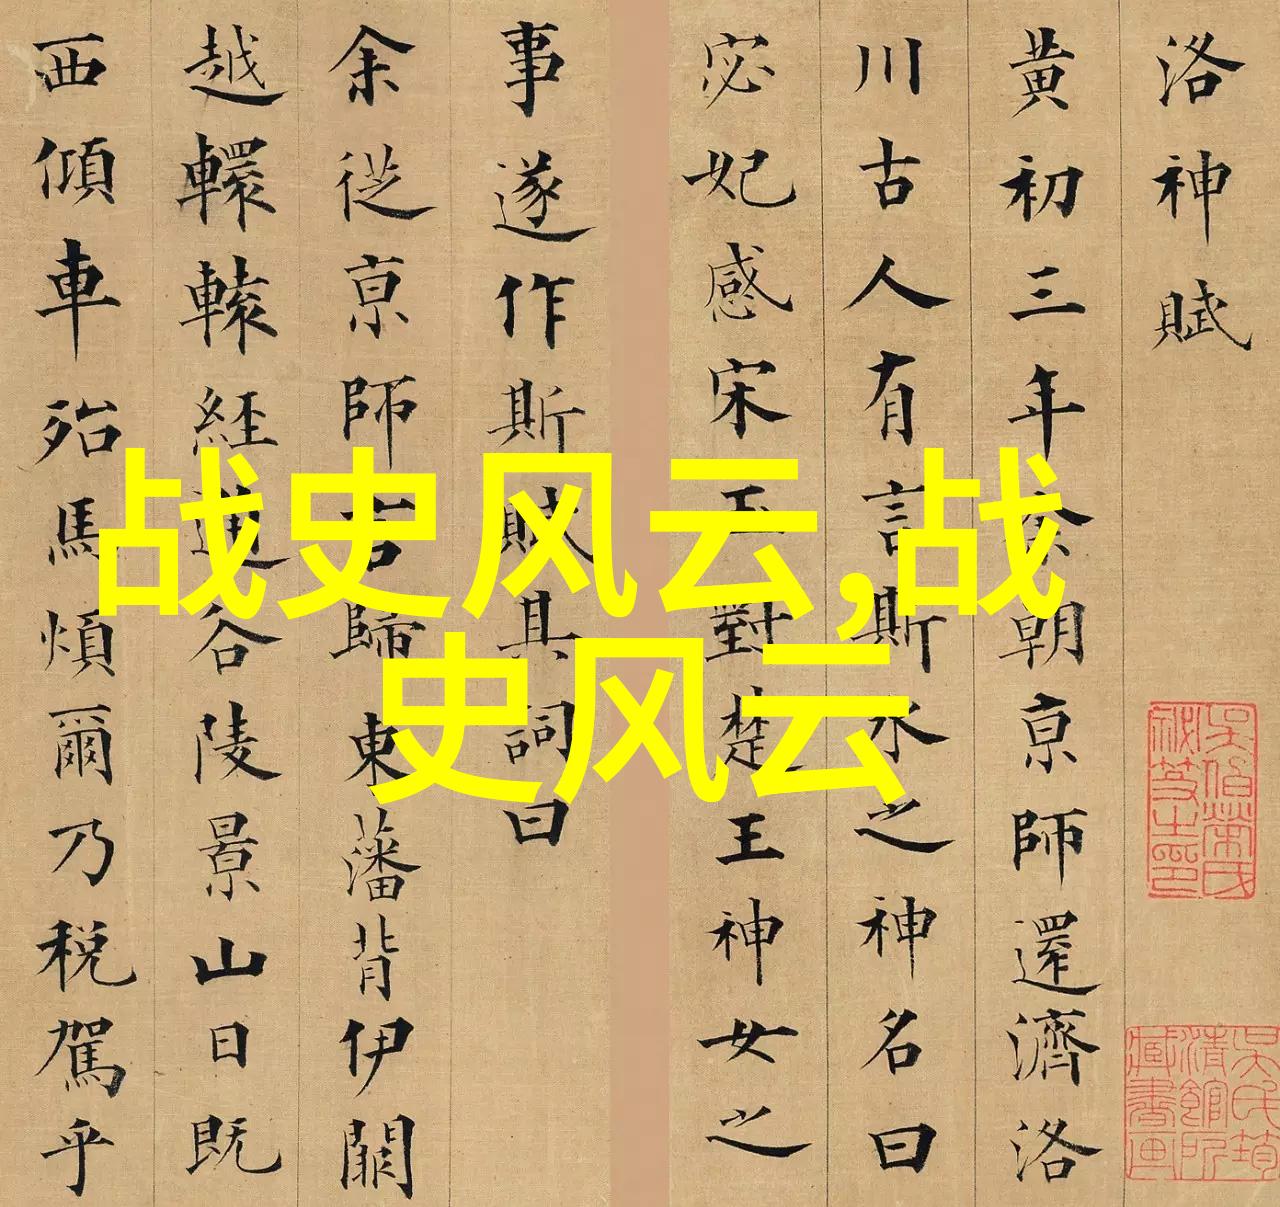 洛神賦
黄初三年余朝亰師還濟洛
川古人有言斯水之神名曰
宓妃感宋玉對楚王神女之
事遂作斯賦其詞曰
余從亰師言歸東藩背伊闕
越轘轅經通谷陵景山日既
西傾車殆馬煩爾乃稅駕乎
吳氏筠清館所藏書画
战史风云,战
史风云